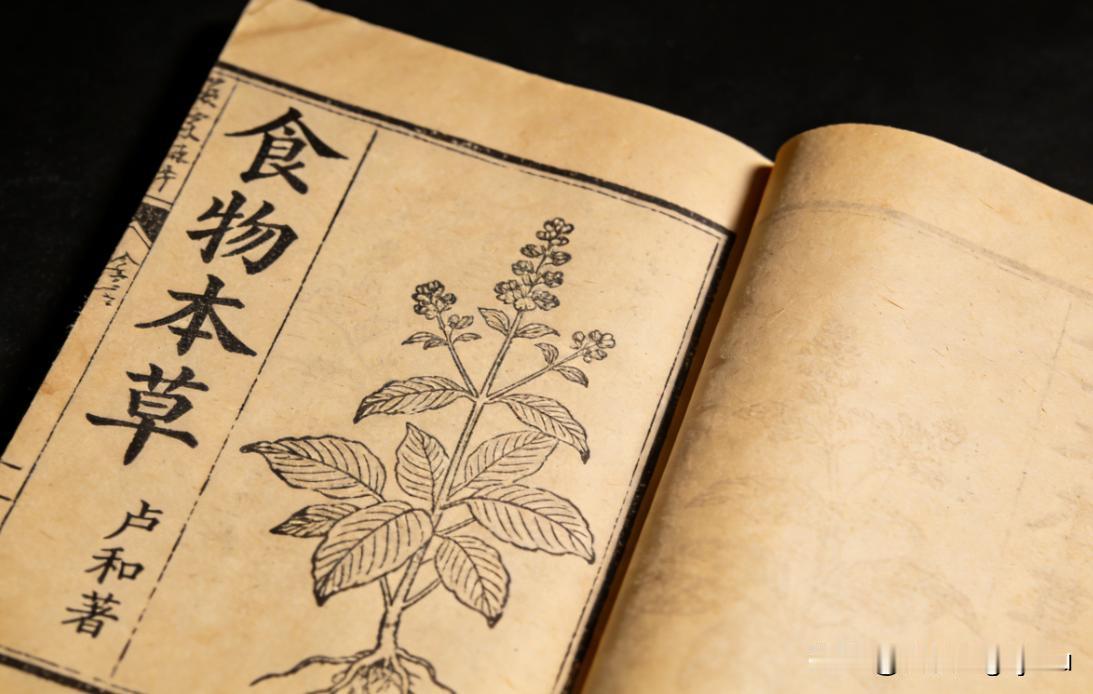 食物本草
卢和著